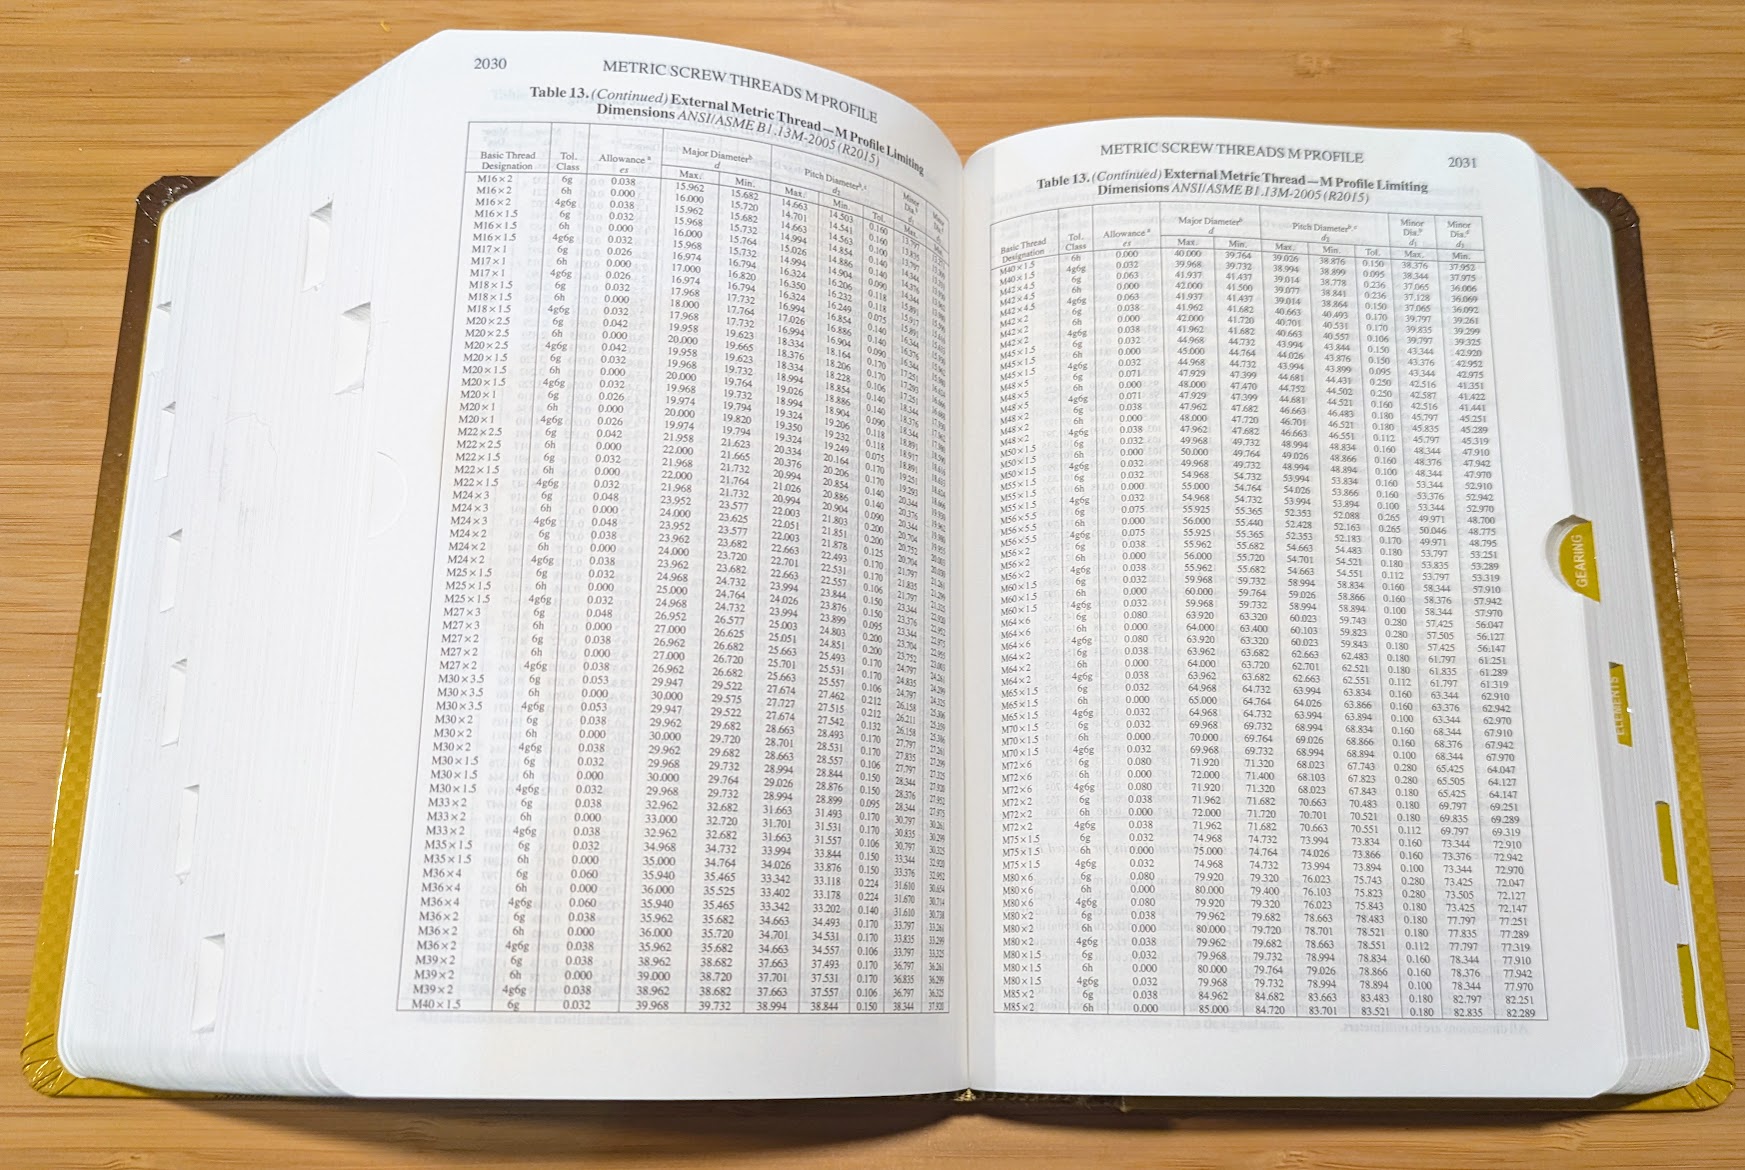 2030
METRIC SCREW THREADS M PROFILE
Table 13. (Continued) External Metric Thread—M Profile Limiting
Dimensions ANSI/ASME B1.13M-2005 (R2015)
Basic Thread Designation Tol. Class Allowance a es Major Diameter b d Pitch Diameter b,c d2 Minor Dia.
Max. Min. Max. Min. Tol.
M16×2 6g 0.038 15.962 15.682 14.663 14.503 0.160
M16×2 6h 0.000 16.000 15.720 14.701 14.541 0.160
M16×2 4g6g 0.038 15.962 15.682 14.663 14.563 0.100
M16×1.5 6g 0.032 15.968 15.732 14.994 14.854 0.140
M16×1.5 6h 0.000 16.000 15.764 15.026 14.886 0.140
M16×1.5 4g6g 0.032 15.968 15.732 14.994 14.904 0.090
M17×1 6g 0.026 16.974 16.794 16.324 16.206 0.118
M17×1 6h 0.000 17.000 16.820 16.350 16.232 0.118
M17×1 4g6g 0.026 16.974 16.794 16.324 16.249 0.075
M18×1.5 6g 0.032 17.968 17.732 16.994 16.854 0.140
M18×1.5 6h 0.000 18.000 17.764 17.026 16.886 0.140
M18×1.5 4g6g 0.032 17.968 17.732 16.994 16.904 0.090
M20×2.5 6g 0.042 19.958 19.623 18.334 18.164 0.170
M20×2.5 6h 0.000 20.000 19.665 18.376 18.206 0.170
M20×2.5 4g6g 0.042 19.958 19.623 18.334 18.228 0.106
M20×1.5 6g 0.032 19.968 19.732 18.994 18.854 0.140
M20×1.5 6h 0.000 20.000 19.764 19.026 18.886 0.140
M20×1.5 4g6g 0.032 19.968 19.732 18.994 18.904 0.090
M20×1 6g 0.026 19.974 19.794 19.324 19.206 0.118
M20×1 6h 0.000 20.000 19.820 19.350 19.232 0.118
M20×1 4g6g 0.026 19.974 19.794 19.324 19.249 0.075
M22×2.5 6g 0.042 21.958 21.623 20.334 20.164 0.170
M22×2.5 6h 0.000 22.000 21.665 20.376 20.206 0.170
M22×1.5 6g 0.032 21.968 21.732 20.994 20.854 0.140
M22×1.5 6h 0.000 22.000 21.764 21.026 20.886 0.140
M22×1.5 4g6g 0.032 21.968 21.732 20.994 20.904 0.090
M24×3 6g 0.048 23.952 23.577 22.003 21.803 0.200
M24×3 6h 0.000 24.000 23.625 22.051 21.851 0.200
M24×3 4g6g 0.048 23.952 23.577 22.003 21.878 0.125
M24×2 6g 0.038 23.962 23.682 22.663 22.493 0.170
M24×2 6h 0.000 24.000 23.720 22.701 22.531 0.170
M24×2 4g6g 0.038 23.962 23.682 22.663 22.557 0.106
M25×1.5 6g 0.032 24.968 24.732 23.994 23.844 0.150
M25×1.5 6h 0.000 25.000 24.764 24.026 23.876 0.150
M25×1.5 4g6g 0.032 24.968 24.732 23.994 23.899 0.095
M27×3 6g 0.048 26.952 26.577 25.003 24.803 0.200
M27×3 6h 0.000 27.000 26.625 25.051 24.851 0.200
M27×2 6g 0.038 26.962 26.682 25.663 25.493 0.170
M27×2 6h 0.000 27.000 26.720 25.701 25.531 0.170
M27×2 4g6g 0.038 26.962 26.682 25.663 25.557 0.106
M30×3.5 6g 0.053 29.947 29.522 27.674 27.462 0.212 26.158
M30×3.5 6h 0.000 30.000 29.575 27.727 27.515 0.212 26.211
M30×3.5 4g6g 0.053 29.947 29.522 27.674 27.542 0.132 26.158
M30×2 6g 0.038 29.962 29.682 28.663 28.493 0.170 27.797
M30×2 6h 0.000 30.000 29.720 28.701 28.531 0.170 27.835
M30×2 4g6g 0.038 29.962 29.682 28.663 28.557 0.106 27.797
M30×1.5 6g 0.032 29.968 29.732 28.994 28.844 0.150 28.344
M30×1.5 6h 0.000 30.000 29.764 29.026 28.876 0.150 28.376
M30×1.5 4g6g 0.032 29.968 29.732 28.994 28.899 0.095 28.344
M33×2 6g 0.038 32.962 32.682 31.663 31.493 0.170 30.797
M33×2 6h 0.000 33.000 32.720 31.701 31.531 0.170 30.835
M33×2 4g6g 0.038 32.962 32.682 31.663 31.557 0.106 30.797
M35×1.5 6g 0.032 34.968 34.732 33.994 33.844 0.150 33.344
M35×1.5 6h 0.000 35.000 34.764 34.026 33.876 0.150 33.376
M36×4 6g 0.060 35.940 35.465 33.342 33.118 0.224 31.610
M36×4 6h 0.000 36.000 35.525 33.402 33.178 0.224 31.670
M36×4 4g6g 0.060 35.940 35.465 33.342 33.202 0.140 31.610
M36×2 6g 0.038 35.962 35.682 34.663 34.493 0.170 33.797
M36×2 6h 0.000 36.000 35.720 34.701 34.531 0.170 33.835
M36×2 4g6g 0.038 35.962 35.682 34.663 34.557 0.106 33.797
M39×2 6g 0.038 38.962 38.682 37.663 37.493 0.170 36.797
M39×2 6h 0.000 39.000 38.720 37.701 37.531 0.170 36.835
M39×2 4g6g 0.038 38.962 38.682 37.663 37.557 0.106 36.797
M40×1.5 6g 0.032 39.968 39.732 38.994 38.844 0.150 38.344
METRIC SCREW THREADS M PROFILE
2031
Table 13. (Continued) External Metric Thread—M Profile Limiting
Dimensions ANSI/ASME B1.13M-2005 (R2015)
Basic Thread Designation Tol. Class Allowance a es Major Diameter b d Pitch Diameter b,c d2 Minor Dia. b d1 Minor Dia. d d3
Max. Min. Max. Min. Tol. Max. Min.
M40×1.5 6h 0.000 40.000 39.764 39.026 38.876 0.150 38.376 37.952
M40×1.5 4g6g 0.032 39.968 39.732 38.994 38.899 0.095 38.344 37.975
M42×4.5 6g 0.063 41.937 41.437 39.014 38.778 0.236 37.065 36.006
M42×4.5 6h 0.000 42.000 41.500 39.077 38.841 0.236 37.128 36.069
M42×4.5 4g6g 0.063 41.937 41.437 39.014 38.864 0.150 37.065 36.092
M42×2 6g 0.038 41.962 41.682 40.663 40.493 0.170 39.797 39.261
M42×2 6h 0.000 42.000 41.720 40.701 40.531 0.170 39.835 39.299
M42×2 4g6g 0.038 41.962 41.682 40.663 40.557 0.106 39.797 39.325
M45×1.5 6g 0.032 44.968 44.732 43.994 43.844 0.150 43.344 42.920
M45×1.5 6h 0.000 45.000 44.764 44.026 43.876 0.150 43.376 42.952
M45×1.5 4g6g 0.032 44.968 44.732 43.994 43.899 0.095 43.344 42.975
M48×5 6g 0.071 47.929 47.399 44.681 44.431 0.250 42.516 41.351
M48×5 6h 0.000 48.000 47.470 44.752 44.502 0.250 42.587 41.422
M48×5 4g6g 0.071 47.929 47.399 44.681 44.521 0.160 42.516 41.441
M48×2 6g 0.038 47.962 47.682 46.663 46.483 0.180 45.797 45.251
M48×2 6h 0.000 48.000 47.720 46.701 46.521 0.180 45.835 45.289
M48×2 4g6g 0.038 47.962 47.682 46.663 46.551 0.112 45.797 45.319
M50×1.5 6g 0.032 49.968 49.732 48.994 48.834 0.160 48.344 47.910
M50×1.5 6h 0.000 50.000 49.764 49.026 48.866 0.160 48.376 47.942
M50×1.5 4g6g 0.032 49.968 49.732 48.994 48.894 0.100 48.344 47.970
M55×1.5 6g 0.032 54.968 54.732 53.994 53.834 0.160 53.344 52.910
M55×1.5 6h 0.000 55.000 54.764 54.026 53.866 0.160 53.376 52.942
M55×1.5 4g6g 0.032 54.968 54.732 53.994 53.894 0.100 53.344 52.970
M56×5.5 6g 0.075 55.925 55.365 52.353 52.088 0.265 49.971 48.700
M56×5.5 6h 0.000 56.000 55.440 52.428 52.163 0.265 50.046 48.775
M56×5.5 4g6g 0.075 55.925 55.365 52.353 52.183 0.170 49.971 48.795
M56×2 6g 0.038 55.962 55.682 54.663 54.483 0.180 53.797 53.251
M56×2 6h 0.000 56.000 55.720 54.701 54.521 0.180 53.835 53.289
M56×2 4g6g 0.038 55.962 55.682 54.663 54.551 0.112 53.797 53.319
M60×1.5 6g 0.032 59.968 59.732 58.994 58.834 0.160 58.344 57.910
M60×1.5 6h 0.000 60.000 59.764 59.026 58.866 0.160 58.376 57.942
M60×1.5 4g6g 0.032 59.968 59.732 58.994 58.894 0.100 58.344 57.970
M64×6 6g 0.080 63.920 63.320 60.023 59.743 0.280 57.425 56.047
M64×6 6h 0.000 64.000 63.400 60.103 59.823 0.280 57.505 56.127
M64×6 4g6g 0.080 63.920 63.320 60.023 59.843 0.180 57.425 56.147
M64×2 6g 0.038 63.962 63.682 62.663 62.483 0.180 61.797 61.251
M64×2 6h 0.000 64.000 63.720 62.701 62.521 0.180 61.835 61.289
M64×2 4g6g 0.038 63.962 63.682 62.663 62.551 0.112 61.797 61.319
M65×1.5 6g 0.032 64.968 64.732 63.994 63.834 0.160 63.344 62.910
M65×1.5 6h 0.000 65.000 64.764 64.026 63.866 0.160 63.376 62.942
M65×1.5 4g6g 0.032 64.968 64.732 63.994 63.894 0.100 63.344 62.970
M70×1.5 6g 0.032 69.968 69.732 68.994 68.834 0.160 68.344 67.910
M70×1.5 6h 0.000 70.000 69.764 69.026 68.866 0.160 68.376 67.942
M70×1.5 4g6g 0.032 69.968 69.732 68.994 68.894 0.100 68.344 67.970
M72×6 6g 0.080 71.920 71.320 68.023 67.743 0.280 65.425 64.047
M72×6 6h 0.000 72.000 71.400 68.103 67.823 0.280 65.505 64.127
M72×6 4g6g 0.080 71.920 71.320 68.023 67.843 0.180 65.425 64.147
M72×2 6g 0.038 71.962 71.682 70.663 70.483 0.180 69.797 69.251
M72×2 6h 0.000 72.000 71.720 70.701 70.521 0.180 69.835 69.289
M72×2 4g6g 0.038 71.962 71.682 70.663 70.551 0.112 69.797 69.319
M75×1.5 6g 0.032 74.968 74.732 73.994 73.834 0.160 73.344 72.910
M75×1.5 6h 0.000 75.000 74.764 74.026 73.866 0.160 73.376 72.942
M75×1.5 4g6g 0.032 74.968 74.732 73.994 73.894 0.100 73.344 72.970
M80×6 6g 0.080 79.920 79.320 76.023 75.743 0.280 73.425 72.047
M80×6 6h 0.000 80.000 79.400 76.103 75.823 0.280 73.505 72.127
M80×6 4g6g 0.080 79.920 79.320 76.023 75.843 0.180 73.425 72.147
M80×2 6g 0.038 79.962 79.682 78.663 78.483 0.180 77.797 77.251
M80×2 6h 0.000 80.000 79.720 78.701 78.521 0.180 77.835 77.289
M80×2 4g6g 0.038 79.962 79.682 78.663 78.551 0.112 77.797 77.319
M80×1.5 6g 0.032 79.968 79.732 78.994 78.834 0.160 78.344 77.910
M80×1.5 6h 0.000 80.000 79.764 79.026 78.866 0.160 78.376 77.942
M80×1.5 4g6g 0.032 79.968 79.732 78.994 78.894 0.100 78.344 77.970
M85×2 6g 0.038 84.962 84.682 83.663 83.483 0.180 82.797 82.251
M85×2 6h 0.000 85.000 84.720 83.701 83.521 0.180 82.835 82.289
GEARING
ELEMENTS